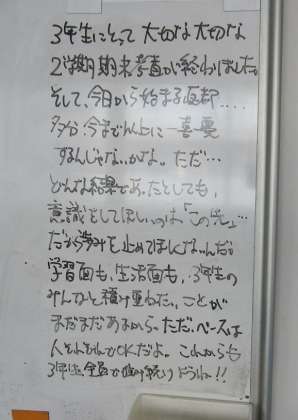 3年生にとって大切な大切な
2学期期末考査が終わりました。
そして、今日から始まる返却....
多分、今まで以上に一喜一憂
するんじゃないかな。ただ…
どんな結果であったとしても、
意識をしてほしいのは「この先」…
だから歩みを止めてほしくないんだ。
学習面も、生活面も、3年生の
みんなと積み重ねたいことが
まだまだあるから。ただ、ペースは
人それぞれでOKだよ。これからも
3年生全員で駆け抜けよう!!